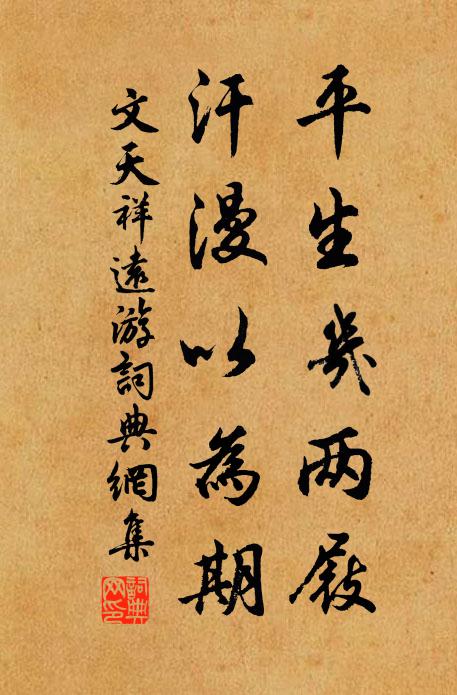 平生幾两屐
汗漫以為期
文天祥遠游詞典網集
詞典网印